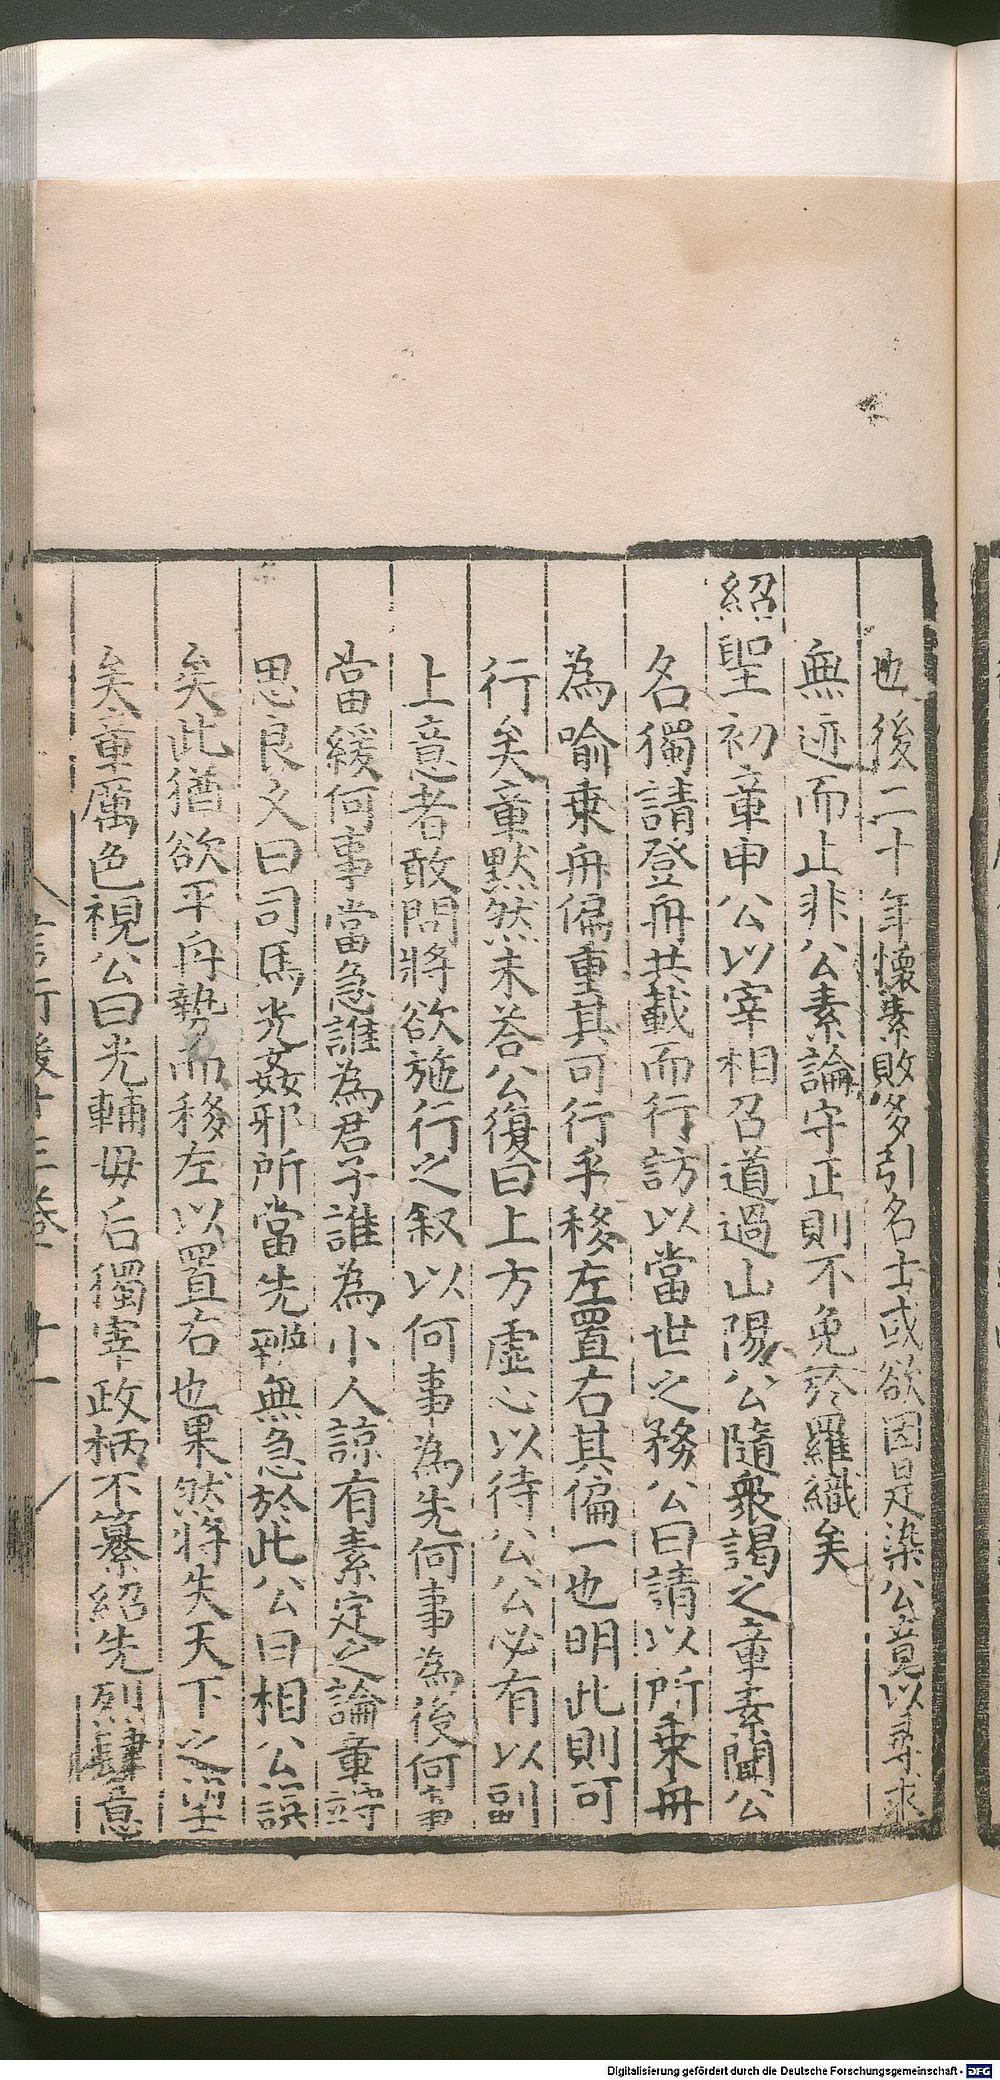 也後二十年懷素敗多引名士或欲因是染公竟以尋求
無迹而止非公素論守正則不免於羅織矣
紹聖初章申公以宰相召道過山陽公隨衆謁之章素聞公
名獨請登舟共載而行訪以當世之務公曰請以所乗舟
為喻乗舟偏重其可行乎移左置右其偏一也明此則可
行矣章默然未荅公復曰上方虛心以待公公必有以副
上意者敢問將欲施行之叙以何事為先何事為後何事
當緩何事當急誰為君子誰為小人諒有素定之論章竚
思良乆曰司馬光姦邪所當先辨無急於此公曰相公誤
矣此猶欲平舟勢而移左以置右也果然將失天下之望
矣章厲色視公曰光輔毋后獨宰政柄不纂紹先烈肆意
言行後十三卷 十一
Digitalisierung gefördert durch die Deutsche Forschungsgemeinschaft - DFG